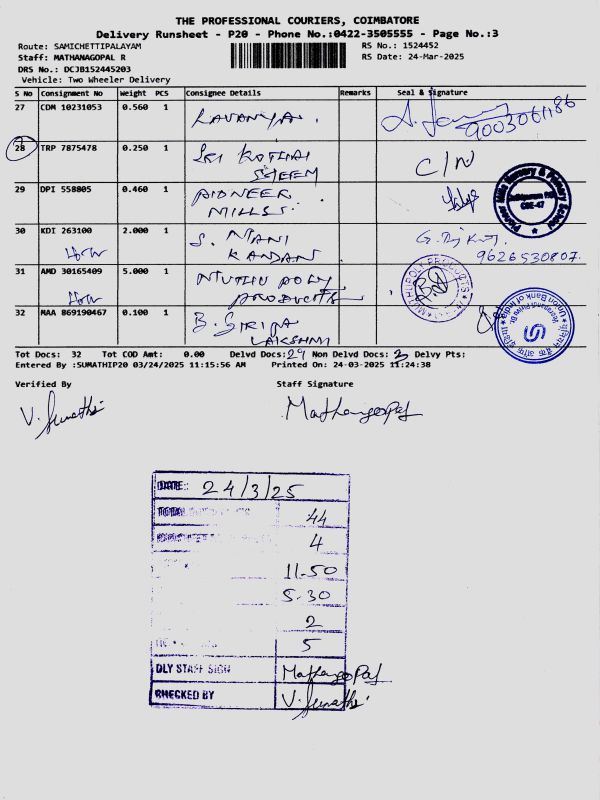 THE PROFESSIONAL COURIERS, COIMBATORE
Delivery Runsheet - P20 - Phone No.:0422-3505555 - Page No.:3
Route: SAMICHETTIPALAYAM
RS No.: 1524452
Staff: MATHANAGOPAL R
RS Date: 24-Mar-2025
DRS No.: DCJB152445203
Vehicle: Two Wheeler Delivery
S No Consignment No Weight PCS Consignee Details Remarks Seal & Signature
27 CDM 10231053 0.560 1 LAVANYA. 9003061186
28 TRP 7875478 0.250 1 SRI KOTHAI SHEEM C/N
29 DPI 558805 0.460 1 PIONEER MILLS.
30 KDI 263100 2.000 1 S. MANI KANDAN 9626530807.
31 AMD 30165409 5.000 1 MUTHU POLY PRODUCTS
MUTHUPOLY PRODUCTS
32 MAA 869190467 0.100 1 B. SIRIJA LAKSHMI
Union Bank of India
Tot Docs: 32 Tot COD Amt: 0.00 Delvd Docs: 29 Non Delvd Docs: 3 Delvy Pts:
Entered By :SUMATHIP20 03/24/2025 11:15:56 AM Printed On: 24-03-2025 11:24:38
Verified By Staff Signature
V. Sumathi Mathanagopal
DATE: 24/3/25
TOTAL 44
4
11.50
5.30
2
5
DLY STAFF SIGN Mathanagopal
CHECKED BY V. Sumathi